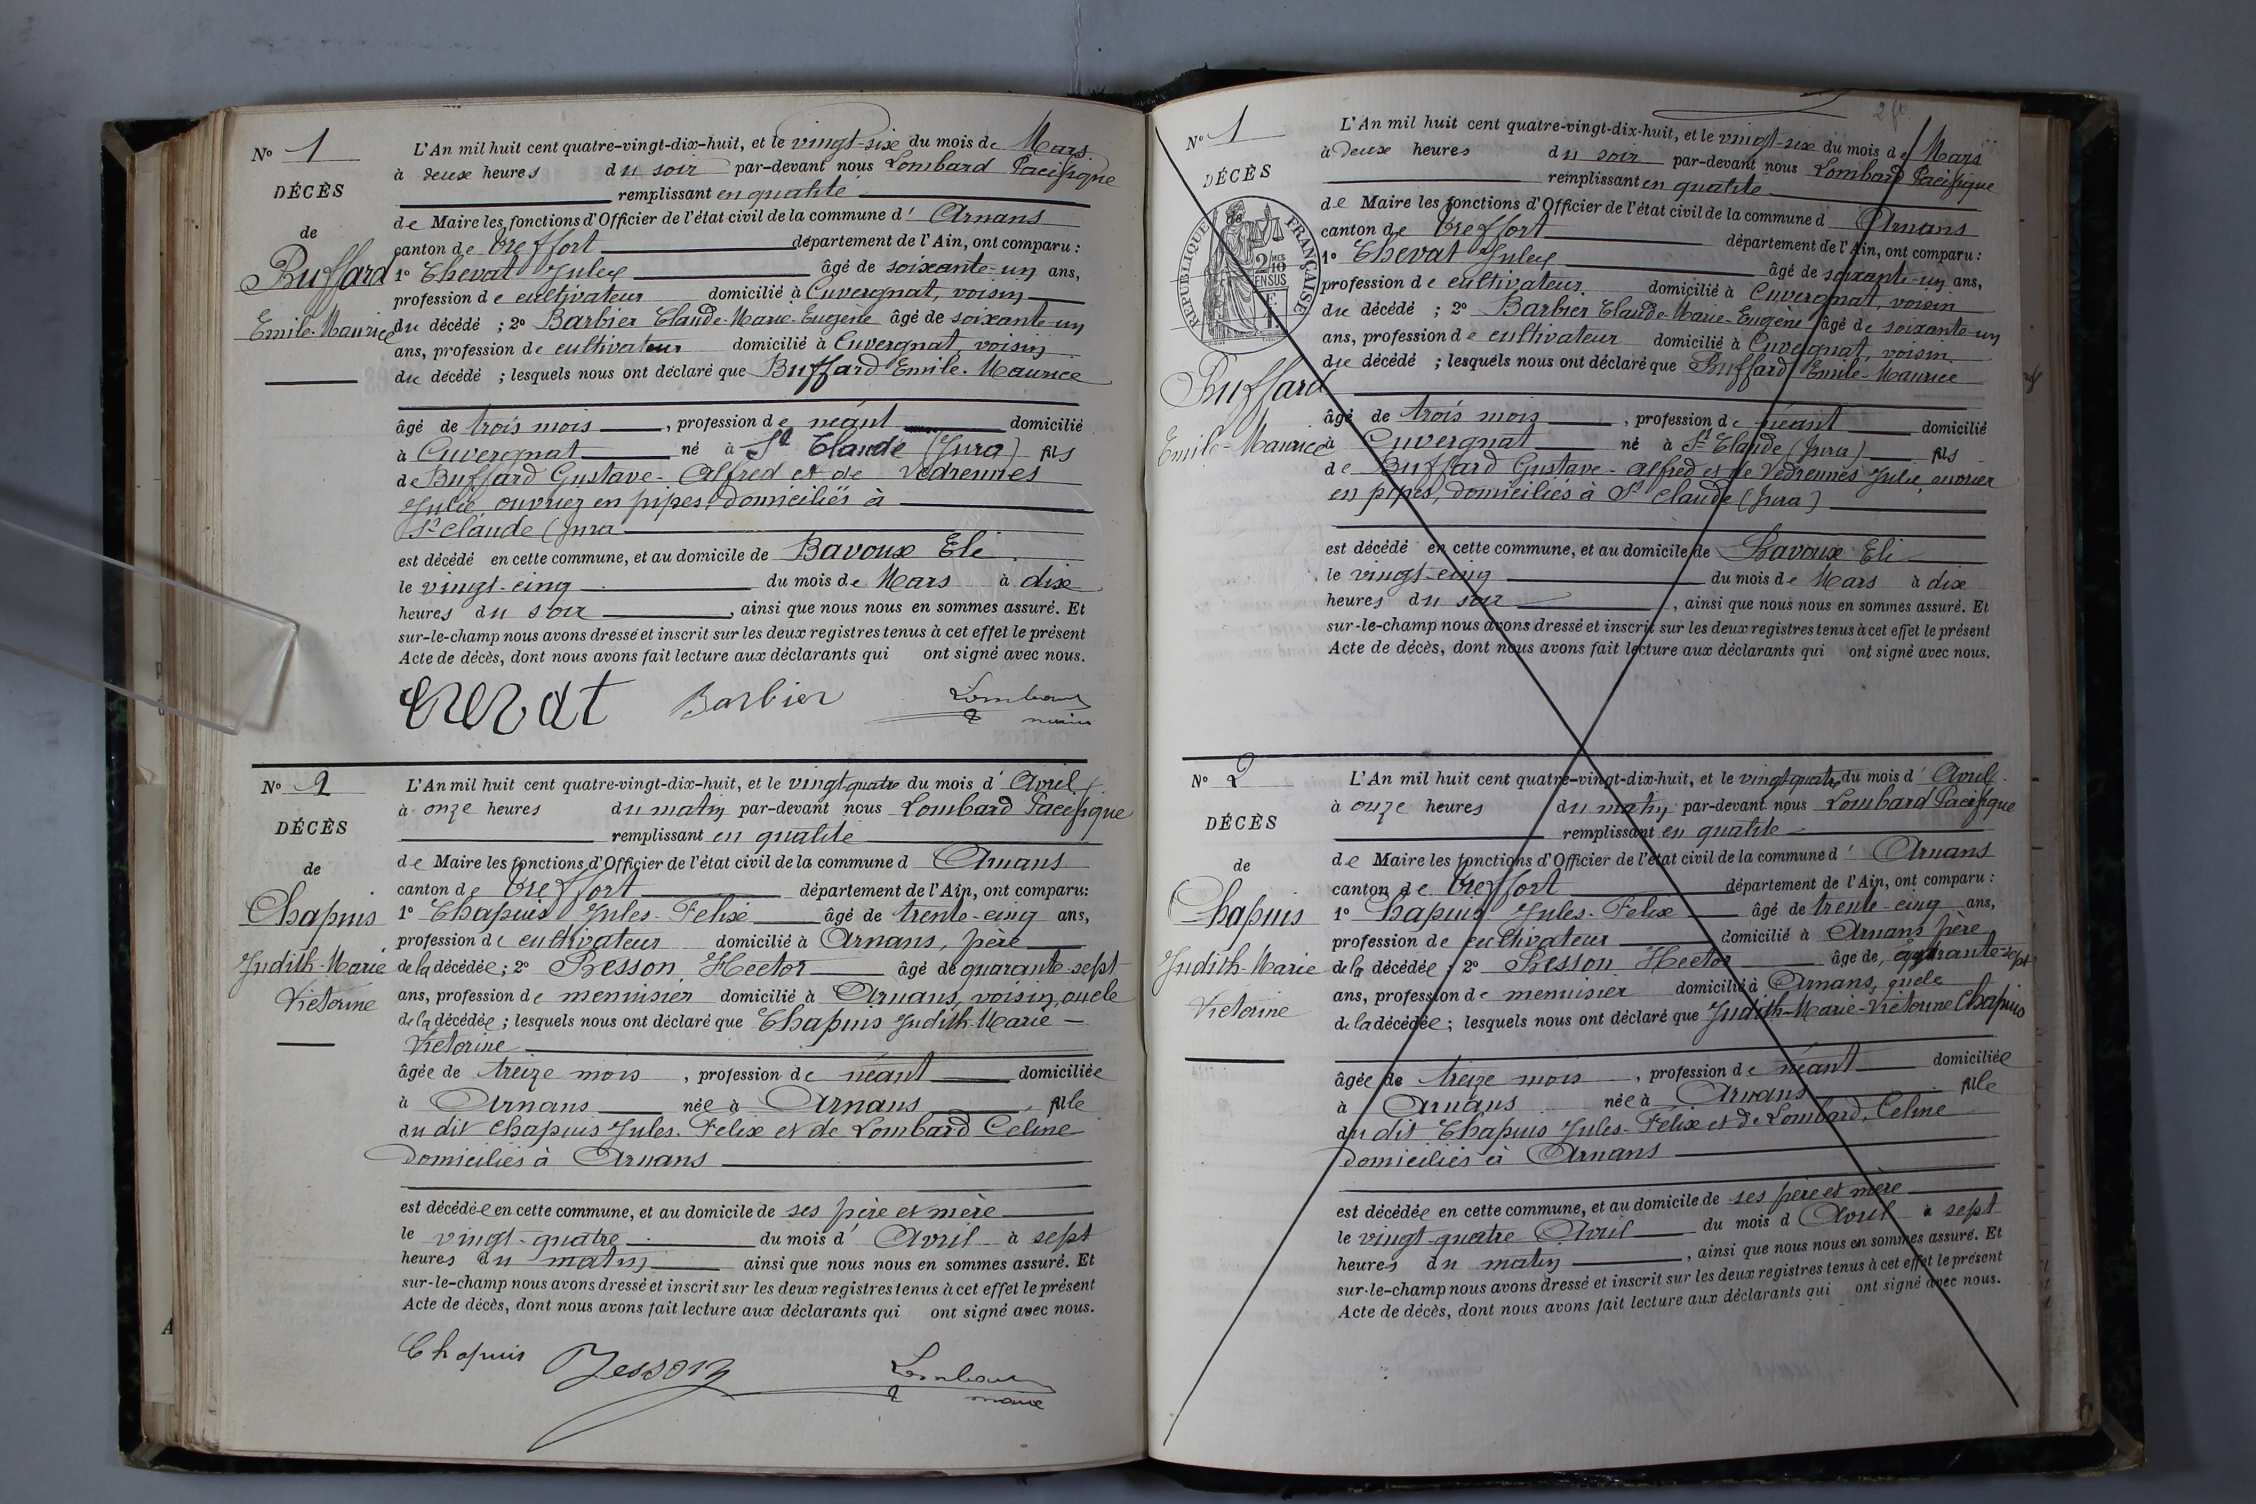 N° 1
DÉCÈS
de
Buffard
Emile-Maurice
L'An mil huit cent quatre-vingt-dix-huit, et le vingt-six du mois de Mars
à deux heures du soir par-devant nous Lombard Pacifique
remplissant en qualité
de Maire les fonctions d'Officier de l'état civil de la commune d' Arnans
canton de Treffort département de l'Ain, ont comparu :
1° Chevat Jules âgé de soixante-un ans,
profession de cultivateur domicilié à Cuvergnat, voisin
du décédé ; 2° Barbier Claude-Marie-Eugène âgé de soixante-un
ans, profession de cultivateur domicilié à Cuvergnat, voisin
du décédé ; lesquels nous ont déclaré que Buffard Emile-Maurice
âgé de trois mois, profession de néant domicilié
à Cuvergnat né à St Claude (Jura) fils
de Buffard Gustave-Alfred et de Vedrennes
Julie, ouvrier en pipes, domiciliés à
St Claude (Jura
est décédé en cette commune, et au domicile de Bavoux Eli
le vingt-cinq du mois de Mars à dix
heures du soir, ainsi que nous nous en sommes assuré. Et
sur-le-champ nous avons dressé et inscrit sur les deux registres tenus à cet effet le présent
Acte de décès, dont nous avons fait lecture aux déclarants qui ont signé avec nous.
Barbier Lombard
maire
N° 2
DÉCÈS
de
Chapuis
Judith-Marie
Victorine
L'An mil huit cent quatre-vingt-dix-huit, et le vingt-quatre du mois d' Avril
à onze heures du matin par-devant nous Lombard Pacifique
remplissant en qualité
de Maire les fonctions d'Officier de l'état civil de la commune d Arnans
canton de Treffort département de l'Ain, ont comparu :
1° Chapuis Jules-Felix âgé de trente-cinq ans,
profession de cultivateur domicilié à Arnans, père
de la décédée ; 2° Besson Hector âgé de quarante-sept
ans, profession de menuisier domicilié à Arnans, voisin, oncle
de la décédée ; lesquels nous ont déclaré que Chapuis Judith-Marie-
Victorine
âgée de treize mois, profession de néant domiciliée
à Arnans née à Arnans, fille
du dit Chapuis Jules-Felix et de Lombard Celine
domiciliés à Arnans
est décédée en cette commune, et au domicile de ses père et mère
le vingt-quatre du mois d' Avril à sept
heures du matin ainsi que nous nous en sommes assuré. Et
sur-le-champ nous avons dressé et inscrit sur les deux registres tenus à cet effet le présent
Acte de décès, dont nous avons fait lecture aux déclarants qui ont signé avec nous.
Chapuis Besson Lombard
maire
N° 1
DÉCÈS
RÉPUBLIQUE FRANÇAISE
2/10 EN SUS
Buffard
Emile-Maurice
L'An mil huit cent quatre-vingt-dix-huit, et le vingt-six du mois de Mars
à deux heures du soir par-devant nous Lombard Pacifique
remplissant en qualité
de Maire les fonctions d'Officier de l'état civil de la commune d Arnans
canton de Treffort département de l'Ain, ont comparu :
1° Chevat Jules âgé de soixante-un ans,
profession de cultivateur domicilié à Cuvergnat, voisin
du décédé ; 2° Barbier Claude-Marie-Eugène âgé de soixante-un
ans, profession de cultivateur domicilié à Cuvergnat, voisin
du décédé ; lesquels nous ont déclaré que Buffard Emile-Maurice
âgé de trois mois, profession de néant domicilié
à Cuvergnat né à St Claude (Jura) fils
de Buffard Gustave-Alfred et de Vedrennes Julie, ouvrier
en pipes, domiciliés à St Claude (Jura)
est décédé en cette commune, et au domicile de Bavoux Eli
le vingt-cinq du mois de Mars à dix
heures du soir, ainsi que nous nous en sommes assuré. Et
sur-le-champ nous avons dressé et inscrit sur les deux registres tenus à cet effet le présent
Acte de décès, dont nous avons fait lecture aux déclarants qui ont signé avec nous.
N° 2
DÉCÈS
de
Chapuis
Judith-Marie
Victorine
L'An mil huit cent quatre-vingt-dix-huit, et le vingt-quatre du mois d' Avril
à onze heures du matin par-devant nous Lombard Pacifique
remplissant en qualité
de Maire les fonctions d'Officier de l'état civil de la commune d' Arnans
canton de Treffort département de l'Ain, ont comparu :
1° Chapuis Jules-Felix âgé de trente-cinq ans,
profession de cultivateur domicilié à Arnans père
de la décédée ; 2° Besson Hector âgé de quarante-sept
ans, profession de menuisier domicilié à Arnans, oncle
de la décédée ; lesquels nous ont déclaré que Judith-Marie-Victorine Chapuis
âgée de treize mois, profession de néant domiciliée
à Arnans née à Arnans fille
du dit Chapuis Jules-Félix et de Lombard, Celine
domiciliés à Arnans
est décédée en cette commune, et au domicile de ses père et mère
le vingt-quatre Avril du mois d Avril à sept
heures du matin, ainsi que nous nous en sommes assuré. Et
sur-le-champ nous avons dressé et inscrit sur les deux registres tenus à cet effet le présent
Acte de décès, dont nous avons fait lecture aux déclarants qui ont signé avec nous.